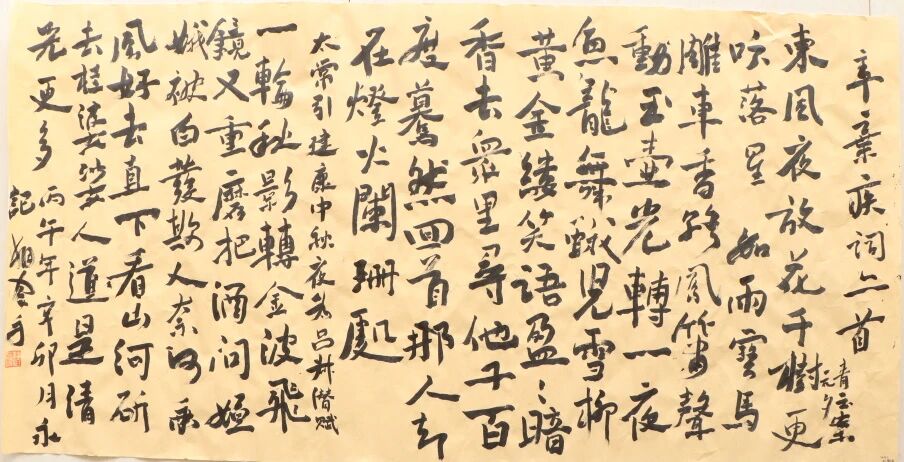 辛棄疾詞二首
青玉案
元夕
東風夜放花千樹更
吹落星如雨寶馬
雕車香路鳳簫聲
動玉壺光轉一夜
魚龍舞蛾兒雪柳
黄金縷笑語盈〻暗
香去衆里尋他千百
度驀然回首那人却
在燈火闌珊處
太常引建康中秋夜為呂叔潛賦
一輪秋影轉金波飛
鏡又重磨把酒問姮
娥被白發欺人奈何乘
風好去直下看山河斫
去桂婆娑人道是清
光更多
丙午年辛卯月永
記